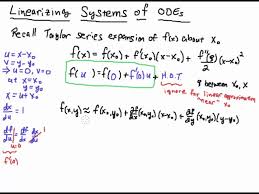 Linearizing Systems of ODEs
Recall Taylor series expansion of f(x) about x₀
u = x-x₀
v = y-y₀
f(x) = f(x₀) + f'(x₀)(x-x₀) + f''(ξ)/2 (x-x₀)²
⇒ u=0, v=0
at x=x₀
y=y₀
x = u+x₀
f(u) = f(0) + f'(0)u + H.O.T
ξ between x₀, x
ignore for linear approximation
"near" x₀
dx/du = 1
f(x,y) ≈ f(x₀,y₀) + ∂f/∂x (x₀,y₀)(x-x₀) + ∂f/∂y (x₀,y₀)(y-y₀)
u=0
f'(0)